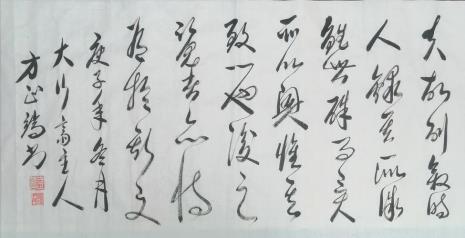 夫故列叙時
人録其所述
雖世殊事異
所以興懷其
致一也後之
覽者亦將
有於斯文
庚子年冬月
大行齋主人
方正書